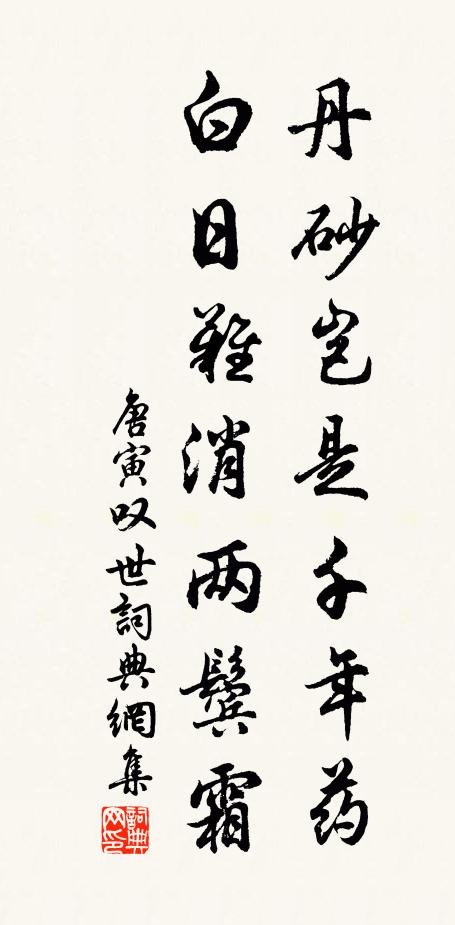 丹砂岂是千年药
白日难消两鬓霜
唐寅叹世詞典網集
詞典网印